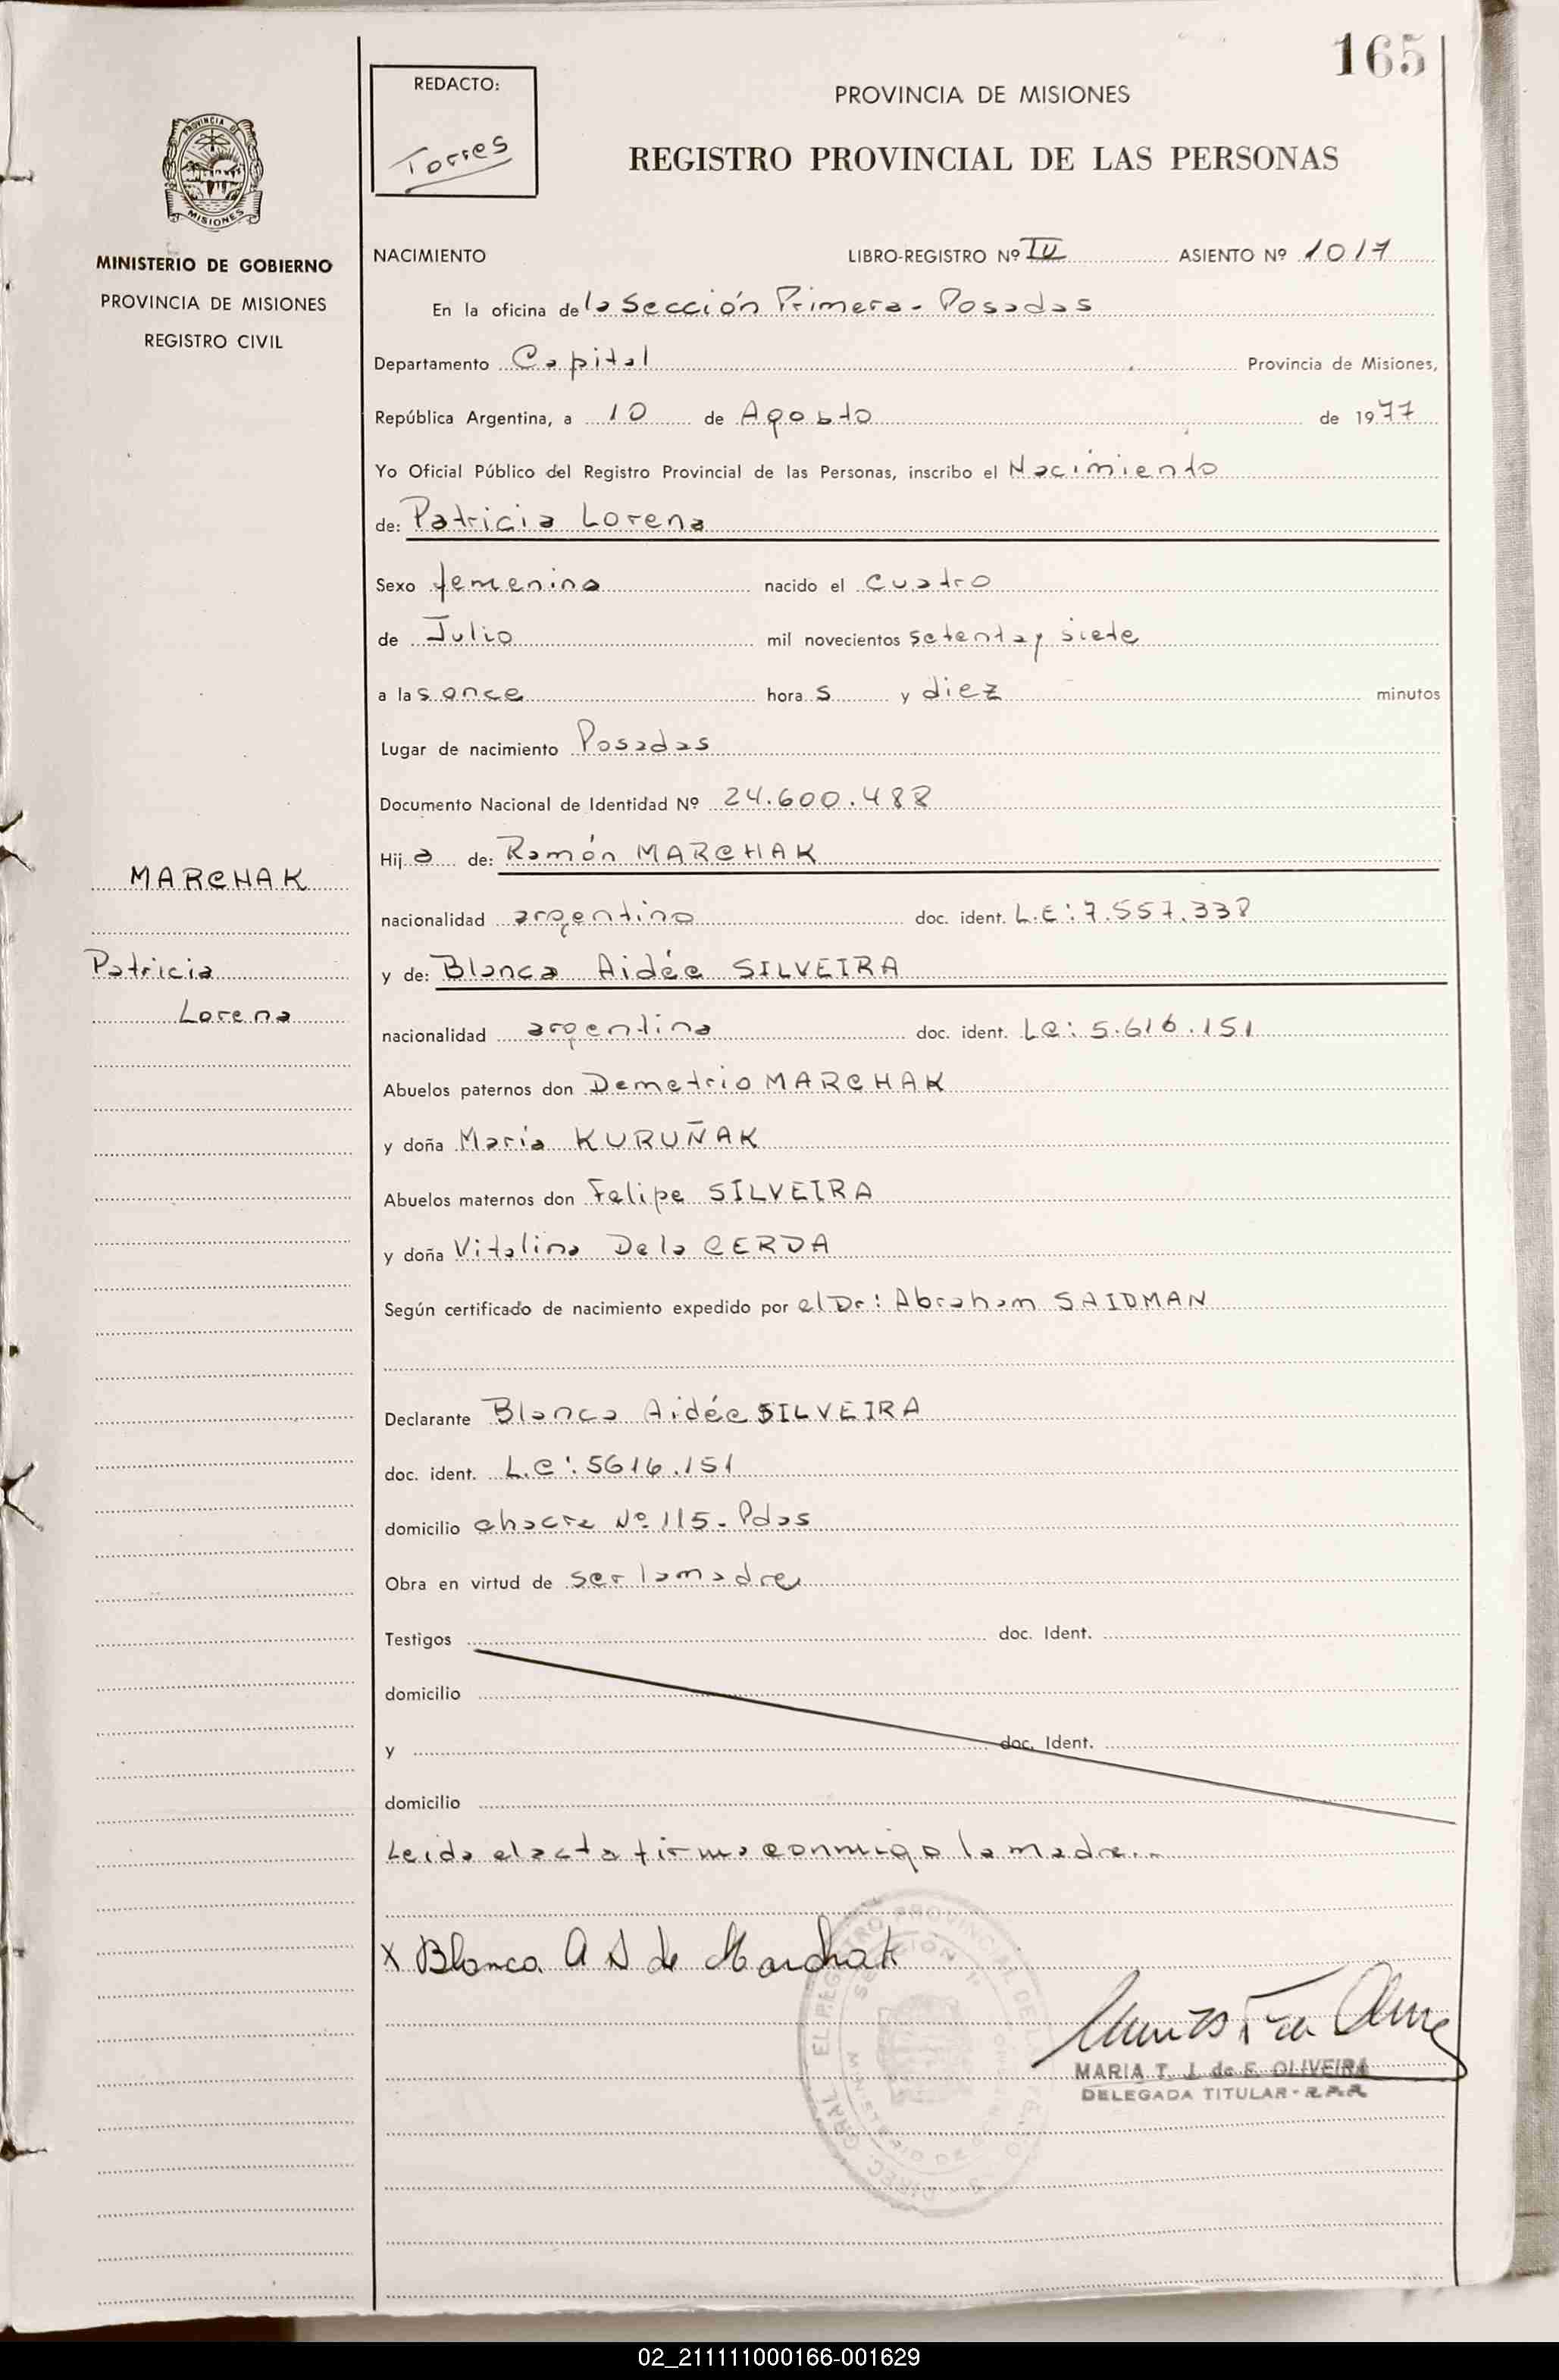 165
REDACTO:
Torres
PROVINCIA DE MISIONES
REGISTRO PROVINCIAL DE LAS PERSONAS
PROVINCIA DE
MISIONES
MINISTERIO DE GOBIERNO
PROVINCIA DE MISIONES
REGISTRO CIVIL
NACIMIENTO LIBRO-REGISTRO Nº IV ASIENTO Nº 1017
En la oficina de la Sección Primera - Posadas
Departamento Capital Provincia de Misiones,
República Argentina, a 10 de Agosto de 1977
Yo Oficial Público del Registro Provincial de las Personas, inscribo el Nacimiento
de: Patricia Lorena
Sexo femenino nacido el cuatro
de Julio mil novecientos setenta y siete
a las once horas y diez minutos
Lugar de nacimiento Posadas
Documento Nacional de Identidad Nº 24.600.488
Hija de: Ramón MARCHAK
nacionalidad argentino doc. ident. L.E: 7.557.338
y de: Blanca Aidée SILVEIRA
nacionalidad argentina doc. ident. LC: 5.616.151
Abuelos paternos don Demetrio MARCHAK
y doña María KURUÑAK
Abuelos maternos don Felipe SILVEIRA
y doña Vitalina De la CERDA
Según certificado de nacimiento expedido por el Dr: Abraham SAIDMAN
Declarante Blanca Aidée SILVEIRA
doc. ident. L.C: 5616.151
domicilio chacra Nº 115 - Pdas
Obra en virtud de ser la madre
Testigos doc. Ident.
domicilio
y doc. Ident.
domicilio
Leida el acta firma conmigo la madre.-
X Blanca A S de Marchak
MARIA T. J. de F. OLIVEIRA
DELEGADA TITULAR - R.P.P.
MARCHAK
Patricia
Lorena
02_211111000166-001629